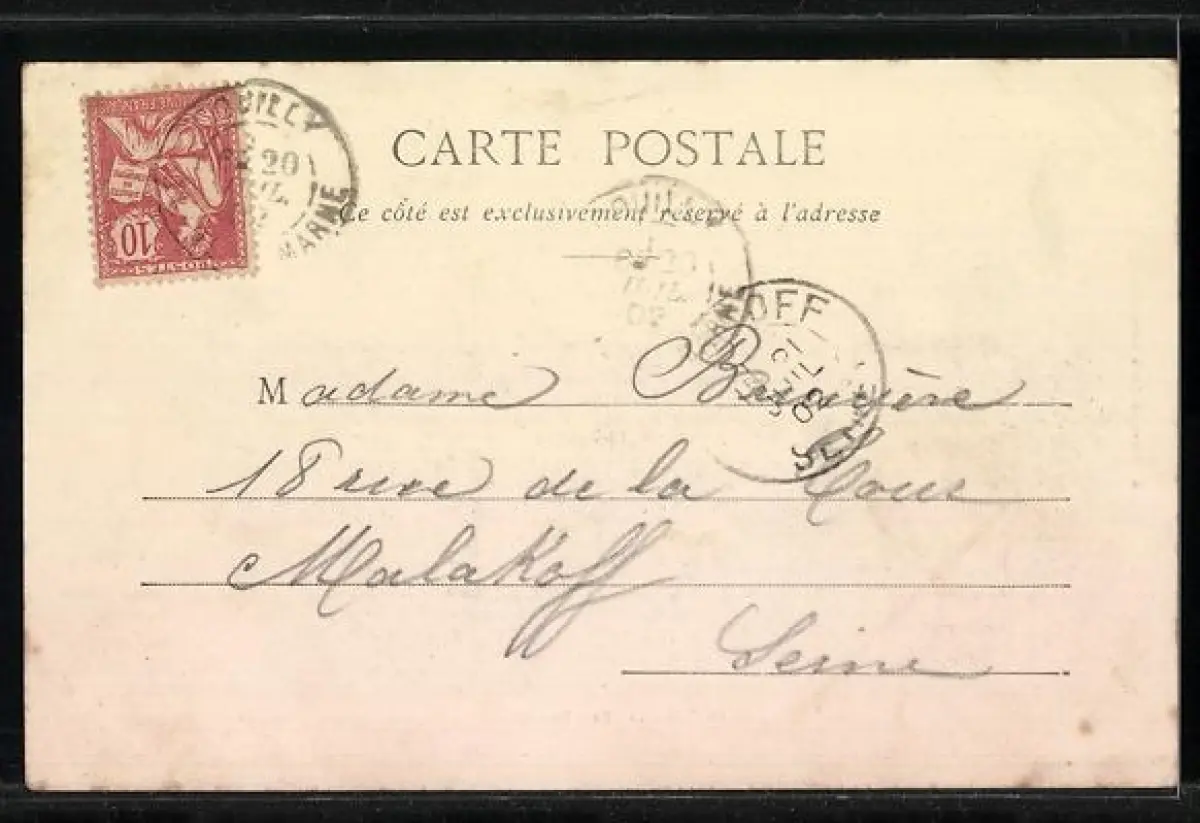 CARTE POSTALE
Ce côté est exclusivement réservé à l'adresse
Madame
18 rue de la Tour
Malakoff
Seine
10
POSTES
20
MARNE
20
JUIL
02
OFF
JUIL
02
SEINE